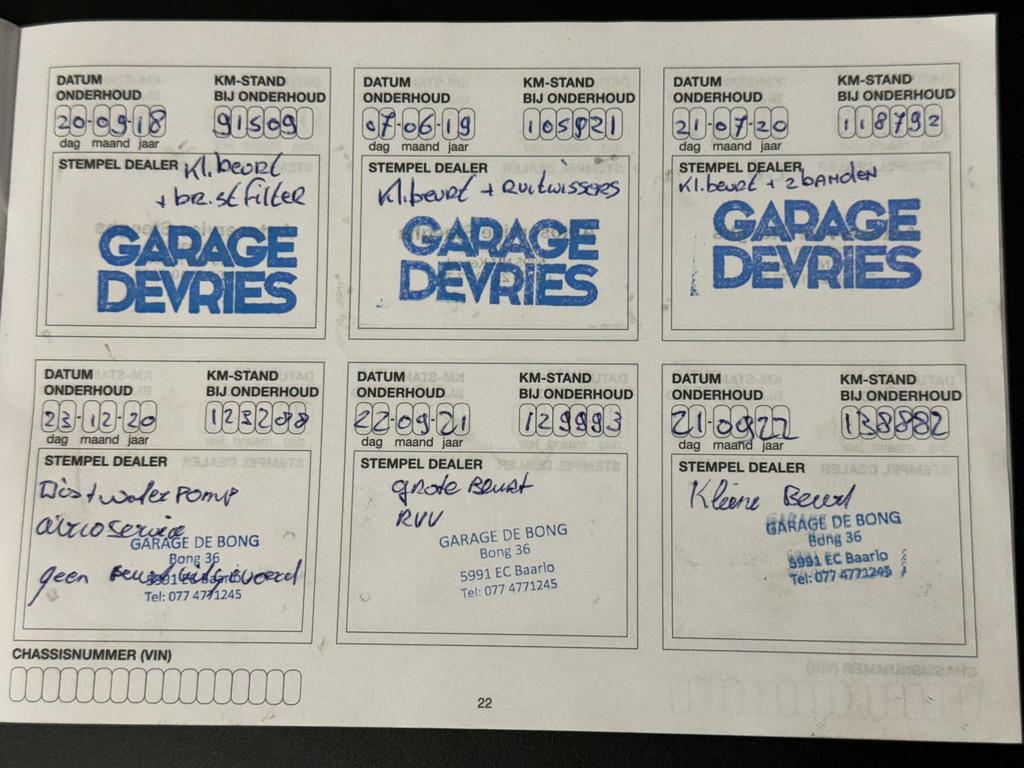 DATUM
ONDERHOUD
KM-STAND
BIJ ONDERHOUD
20-09-18
91509
dag maand jaar
STEMPEL DEALER
Kl.beurt
+ br.st filter
GARAGE
DEVRIES
DATUM
ONDERHOUD
KM-STAND
BIJ ONDERHOUD
07-06-19
105821
dag maand jaar
STEMPEL DEALER
Kl.beurt + Ruitwissers
GARAGE
DEVRIES
DATUM
ONDERHOUD
KM-STAND
BIJ ONDERHOUD
21-07-20
118792
dag maand jaar
STEMPEL DEALER
Kl.beurt + 2 banden
GARAGE
DEVRIES
DATUM
ONDERHOUD
KM-STAND
BIJ ONDERHOUD
23-12-20
123288
dag maand jaar
STEMPEL DEALER
waterpomp
aircoservice
GARAGE DE BONG
Bong 36
geen
5991 EC Baarlo
Tel: 077 4771245
DATUM
ONDERHOUD
KM-STAND
BIJ ONDERHOUD
22-09-21
129993
dag maand jaar
STEMPEL DEALER
grote Beurt
RVV
GARAGE DE BONG
Bong 36
5991 EC Baarlo
Tel: 077 4771245
DATUM
ONDERHOUD
KM-STAND
BIJ ONDERHOUD
21-0922
138882
dag maand jaar
STEMPEL DEALER
Kleine Beurt
GARAGE DE BONG
Bong 36
5991 EC Baarlo
Tel: 077 4771245
CHASSISNUMMER (VIN)
22